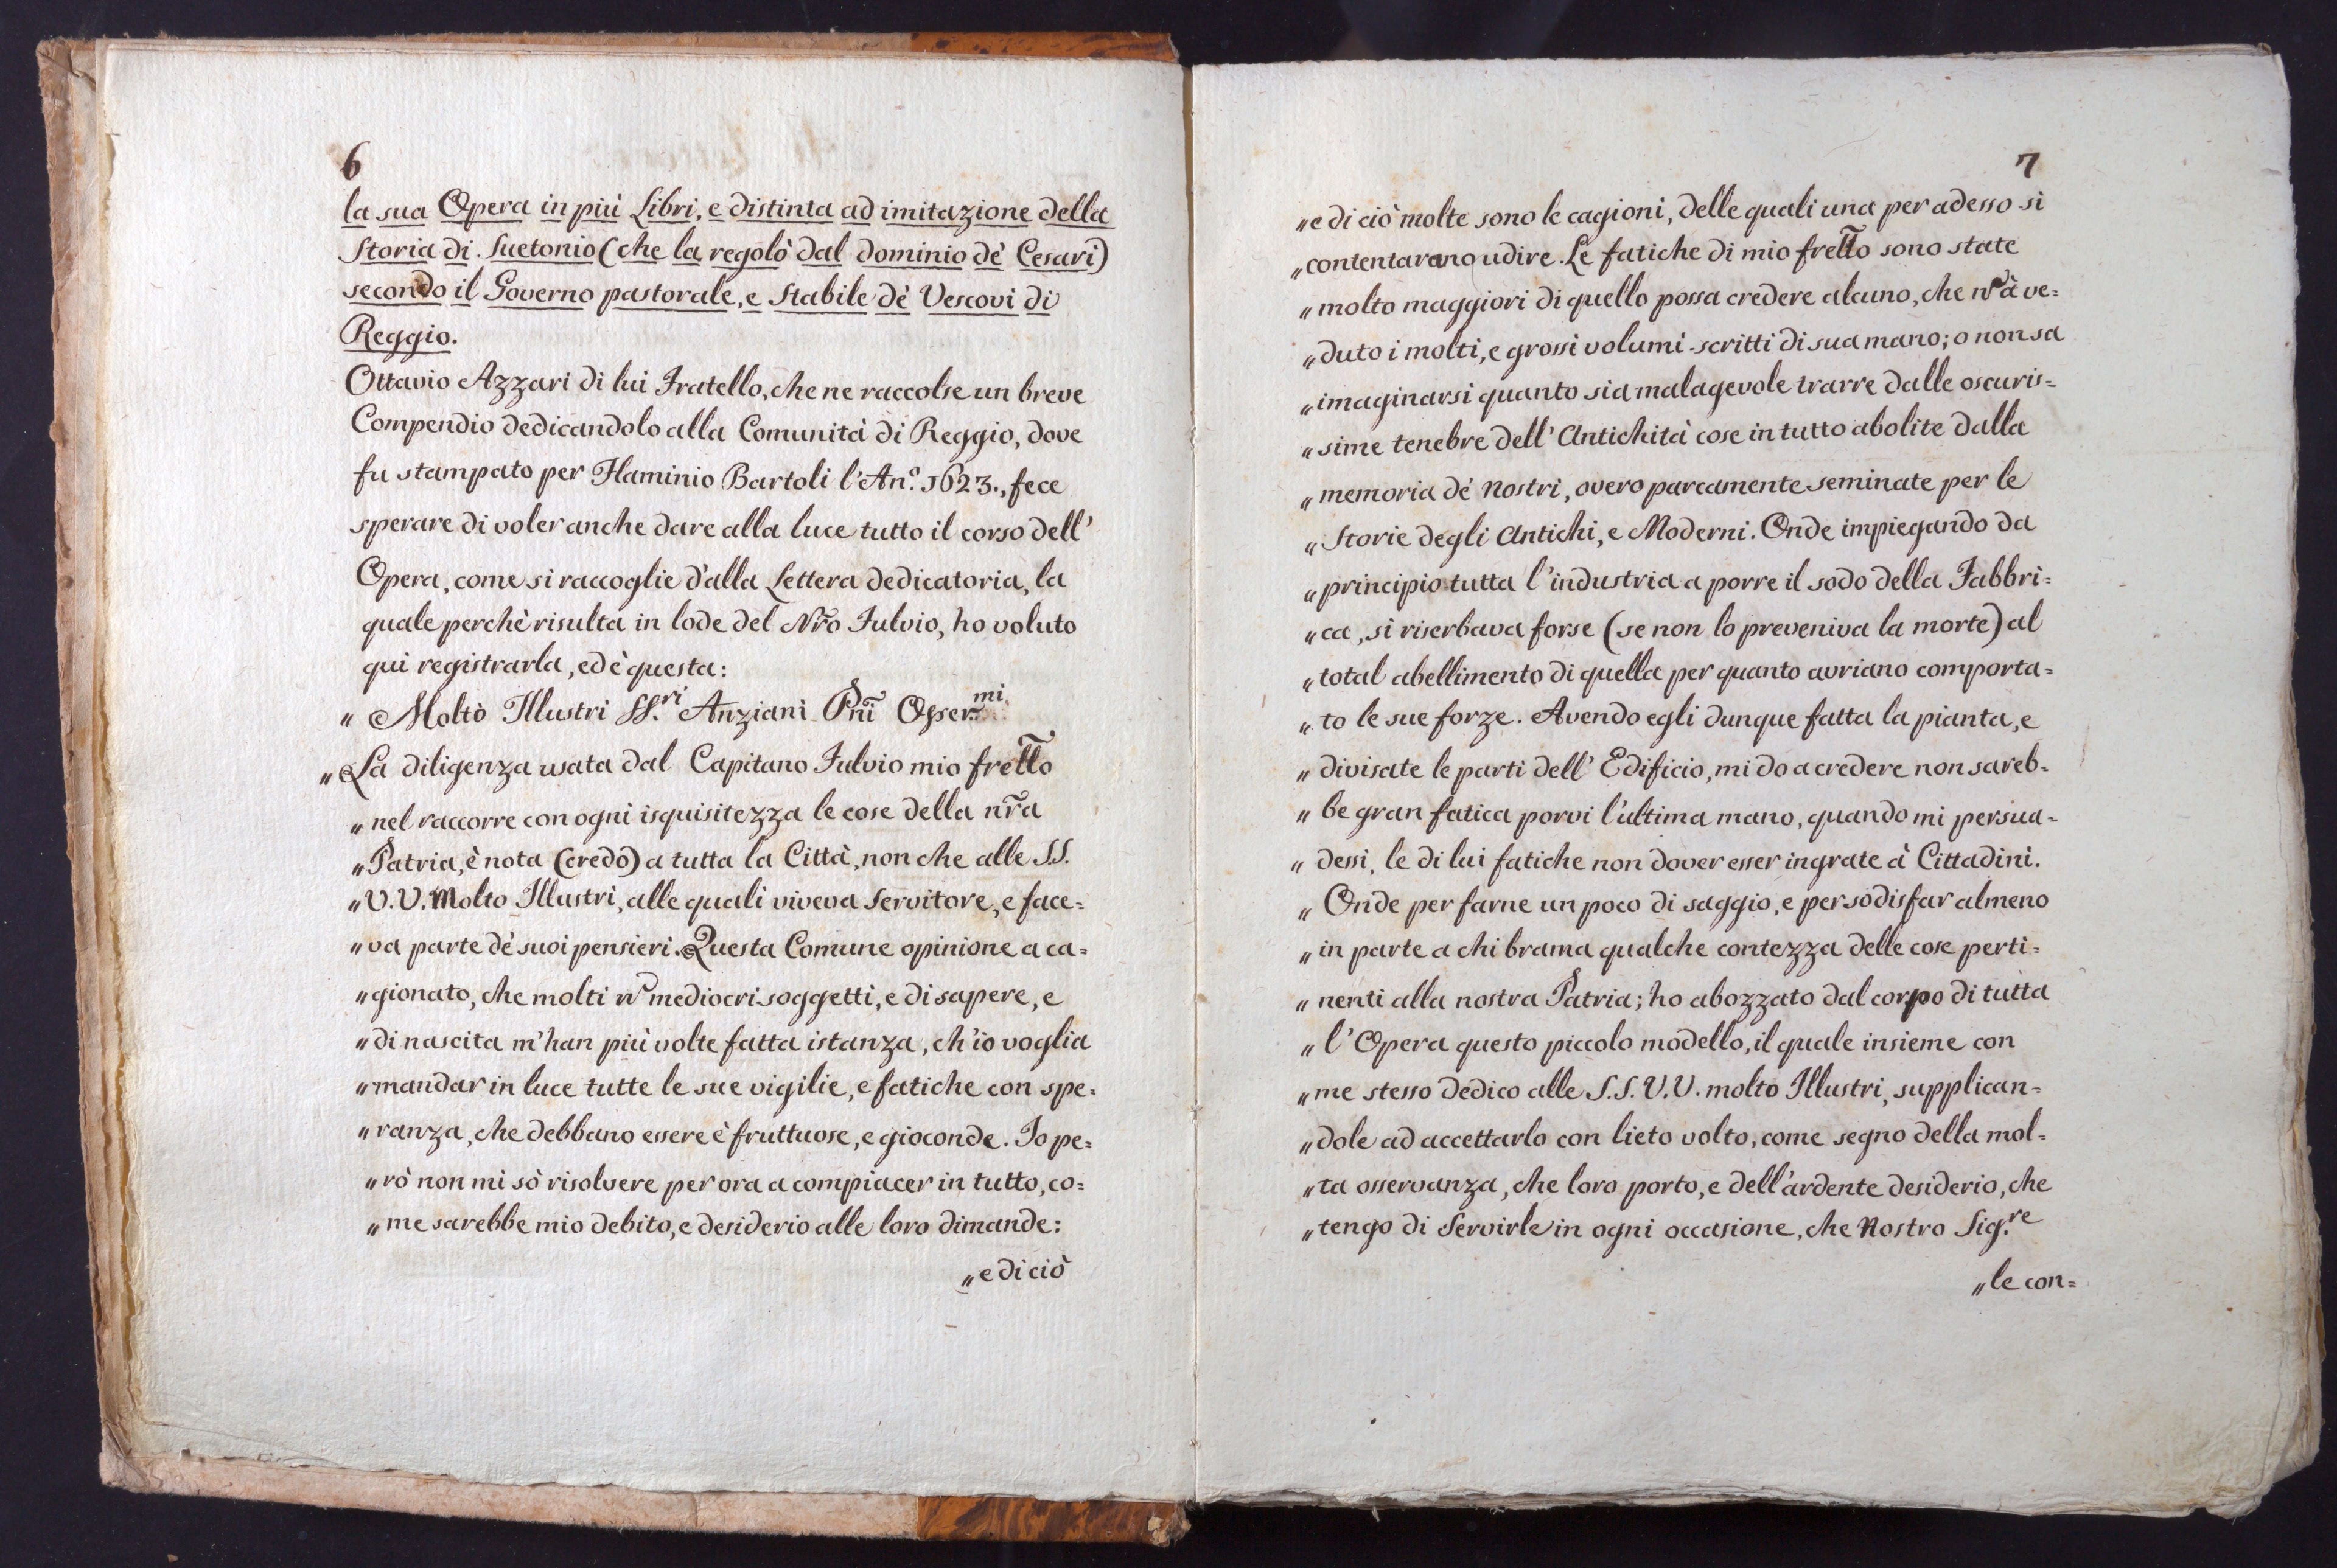 6
la sua Opera in più Libri, e distinta ad imitazione della
Storia di. Suetonio (che la regolò dal dominio dè Cesari)
secondo il Governo pastorale, e Stabile dè Vescovi di
Reggio.
Ottavio Azzari di lui Fratello, che ne raccolse un breve
Compendio dedicandolo alla Comunità di Reggio, dove
fu stampato per Flaminio Bartoli l'An.° 1623., fece
sperare di voler anche dare alla luce tutto il corso dell'
Opera, come si raccoglie d'alla Lettera dedicatoria, la
quale perchè risulta in lode del Nr̃o Fulvio, ho voluto
qui registrarla, ed è questa:
„ Moltò Illustri SS.ri Anziani Pñi Osser.mi
„ La diligenza usata dal Capitano Fulvio mio frello
„ nel raccorre con ogni isquisitezza le cose della nr̃a
„ Patria, è nota (credo) a tutta la Città, non che alle S.S.
„ V.V. Molto Illustri, alle quali viveva Servitore, e face=
„ va parte dè suoi pensieri. Questa Comune opinione a ca=
„ gionato, che molti nō mediocri soggetti, e di sapere, e
„ di nascita m'han più volte fatta istanza, ch'io voglia
„ mandar in luce tutte le sue vigilie, e fatiche con spe=
„ ranza, che debbano essere è fruttuose, e gioconde. Io pe=
„ rò non mi sò risolvere per ora a compiacer in tutto, co=
„ me sarebbe mio debito, e desiderio alle loro dimande:
„ e di ciò
7
„ e di ciò molte sono le cagioni, delle quali una per adesso si
„ contentarano udire. Le fatiche di mio frello sono state
„ molto maggiori di quello possa credere alcuno, che nō à ve=
„ duto i molti, e grossi volumi scritti di sua mano; o non sa
„ imaginarsi quanto sia malagevole trarre dalle oscuris=
„ sime tenebre dell' Antichità cose in tutto abolite dalla
„ memoria dè nostri, overo parcamente seminate per le
„ Storie degli Antichi, e Moderni. Onde impiegando da
„ principio tutta l'industria a porre il sodo della Fabbri=
„ ca, si riserbava forse (se non lo preveniva la morte) al
„ total abellimento di quella per quanto avriano comporta=
„ to le sue forze. Avendo egli dunque fatta la pianta, e
„ divisate le parti dell' Edificio, mi do a credere non sareb=
„ be gran fatica porvi l'ultima mano, quando mi persua=
„ dessi, le di lui fatiche non dover esser ingrate à Cittadini.
„ Onde per farne un poco di saggio, e per sodisfar almeno
„ in parte a chi brama qualche contezza delle cose perti=
„ nenti alla nostra Patria; ho abozzato dal corpo di tutta
„ l'Opera questo piccolo modello, il quale insieme con
„ me stesso dedico alle S.S. V.V. molto Illustri, supplican=
„ dole ad accettarlo con lieto volto, come segno della mol=
„ ta osservanza, che loro porto, e dell'ardente desiderio, che
„ tengo di Servirle in ogni occasione, che Nostro Sig.re
„ le con=